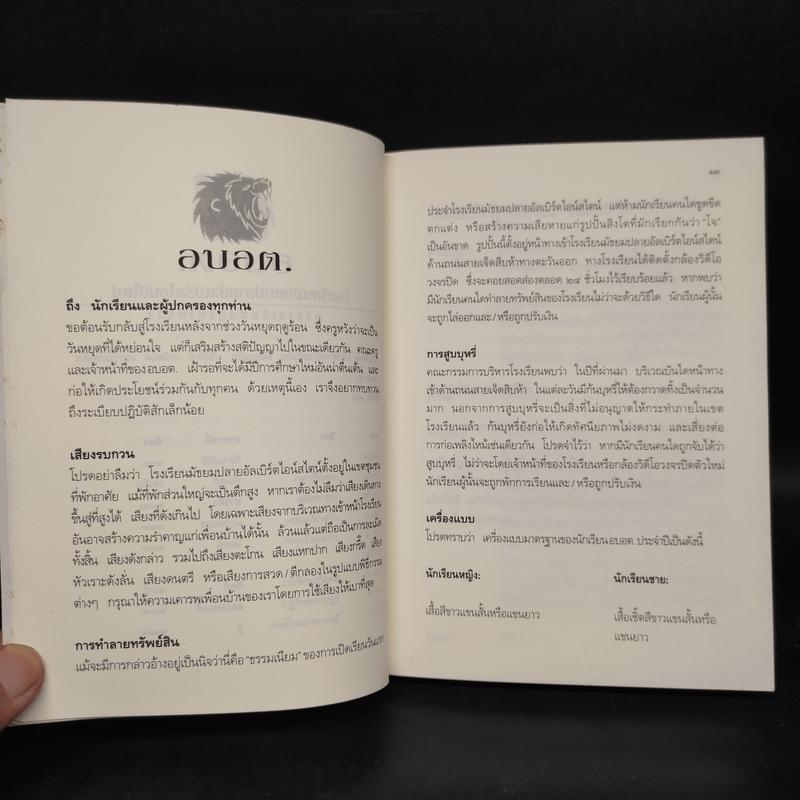 อบอต.
ถึง นักเรียนและผู้ปกครองทุกท่าน
ขอต้อนรับกลับสู่โรงเรียนหลังจากช่วงวันหยุดฤดูร้อน ซึ่งครูหวังว่าจะเป็น
วันหยุดที่ได้หย่อนใจ แต่ก็เสริมสร้างสติปัญญาไปในขณะเดียวกัน คณะครู
และเจ้าหน้าที่ของอบอต. เฝ้ารอที่จะได้มีปีการศึกษาใหม่อันน่าตื่นเต้น และ
ก่อให้เกิดประโยชน์ร่วมกันกับทุกคน ด้วยเหตุนี้เอง เราจึงอยากทบทวน
ถึงระเบียบปฏิบัติสักเล็กน้อย
เสียงรบกวน
โปรดอย่าลืมว่า โรงเรียนมัธยมปลายอัลเบิร์ตไอน์สไตน์ตั้งอยู่ในเขตชุมชน
ที่พักอาศัย แม้ที่พักส่วนใหญ่จะเป็นตึกสูง หากเราต้องไม่ลืมว่าเสียงเดินทาง
ขึ้นสู่ที่สูงได้ เสียงที่ดังเกินไป โดยเฉพาะเสียงจากบริเวณทางเข้าหน้าโรงเรียน
อันอาจสร้างความรำคาญแก่เพื่อนบ้านได้นั้น ล้วนแล้วแต่ถือเป็นการละเมิด
ทั้งสิ้น เสียงดังกล่าว รวมไปถึงเสียงตะโกน เสียงแหกปาก เสียงกรี๊ด เสียง
หัวเราะดังลั่น เสียงดนตรี หรือเสียงการสวด/ตีกลองในรูปแบบพิธีกรรม
ต่างๆ กรุณาให้ความเคารพเพื่อนบ้านของเราโดยการใช้เสียงให้เบาที่สุด
การทำลายทรัพย์สิน
แม้จะมีการกล่าวอ้างอยู่เป็นนิจว่านี่คือ "ธรรมเนียม" ของการเปิดเรียนวันแรก
๑๓
ประจำโรงเรียนมัธยมปลายอัลเบิร์ตไอน์สไตน์ แต่ห้ามนักเรียนคนใดขูดขีด
ตกแต่ง หรือสร้างความเสียหายแก่รูปปั้นสิงโตที่มักเรียกกันว่า "โจ"
เป็นอันขาด รูปปั้นนี้ตั้งอยู่หน้าทางเข้าโรงเรียนมัธยมปลายอัลเบิร์ตไอน์สไตน์
ด้านถนนสายเจ็ดสิบห้าทางตะวันออก ทางโรงเรียนได้ติดตั้งกล้องวิดีโอ
วงจรปิด ซึ่งจะคอยสอดส่องตลอด ๒๔ ชั่วโมงไว้เรียบร้อยแล้ว หากพบว่า
มีนักเรียนคนใดทำลายทรัพย์สินของโรงเรียนไม่ว่าจะด้วยวิธีใด นักเรียนผู้นั้น
จะถูกไล่ออกและ/หรือถูกปรับเงิน
การสูบบุหรี่
คณะกรรมการบริหารโรงเรียนพบว่า ในปีที่ผ่านมา บริเวณบันไดหน้าทาง
เข้าด้านถนนสายเจ็ดสิบห้า ในแต่ละวันมีก้นบุหรี่ให้ต้องกวาดทิ้งเป็นจำนวน
มาก นอกจากการสูบบุหรี่จะเป็นสิ่งที่ไม่อนุญาตให้กระทำภายในเขต
โรงเรียนแล้ว ก้นบุหรี่ยังก่อให้เกิดทัศนียภาพไม่งดงาม และเสี่ยงต่อ
การก่อเพลิงไหม้เช่นเดียวกัน โปรดจำไว้ว่า หากมีนักเรียนคนใดถูกจับได้ว่า
สูบบุหรี่ ไม่ว่าจะโดยเจ้าหน้าที่ของโรงเรียนหรือกล้องวิดีโอวงจรปิดตัวใหม่
นักเรียนผู้นั้นจะถูกพักการเรียนและ/หรือถูกปรับเงิน
เครื่องแบบ
โปรดทราบว่า เครื่องแบบมาตรฐานของนักเรียนอบอต. ประจำปีเป็นดังนี้
นักเรียนหญิง: นักเรียนชาย:
เสื้อสีขาวแขนสั้นหรือแขนยาว เสื้อเชิ้ตสีขาวแขนสั้นหรือ
แขนยาว